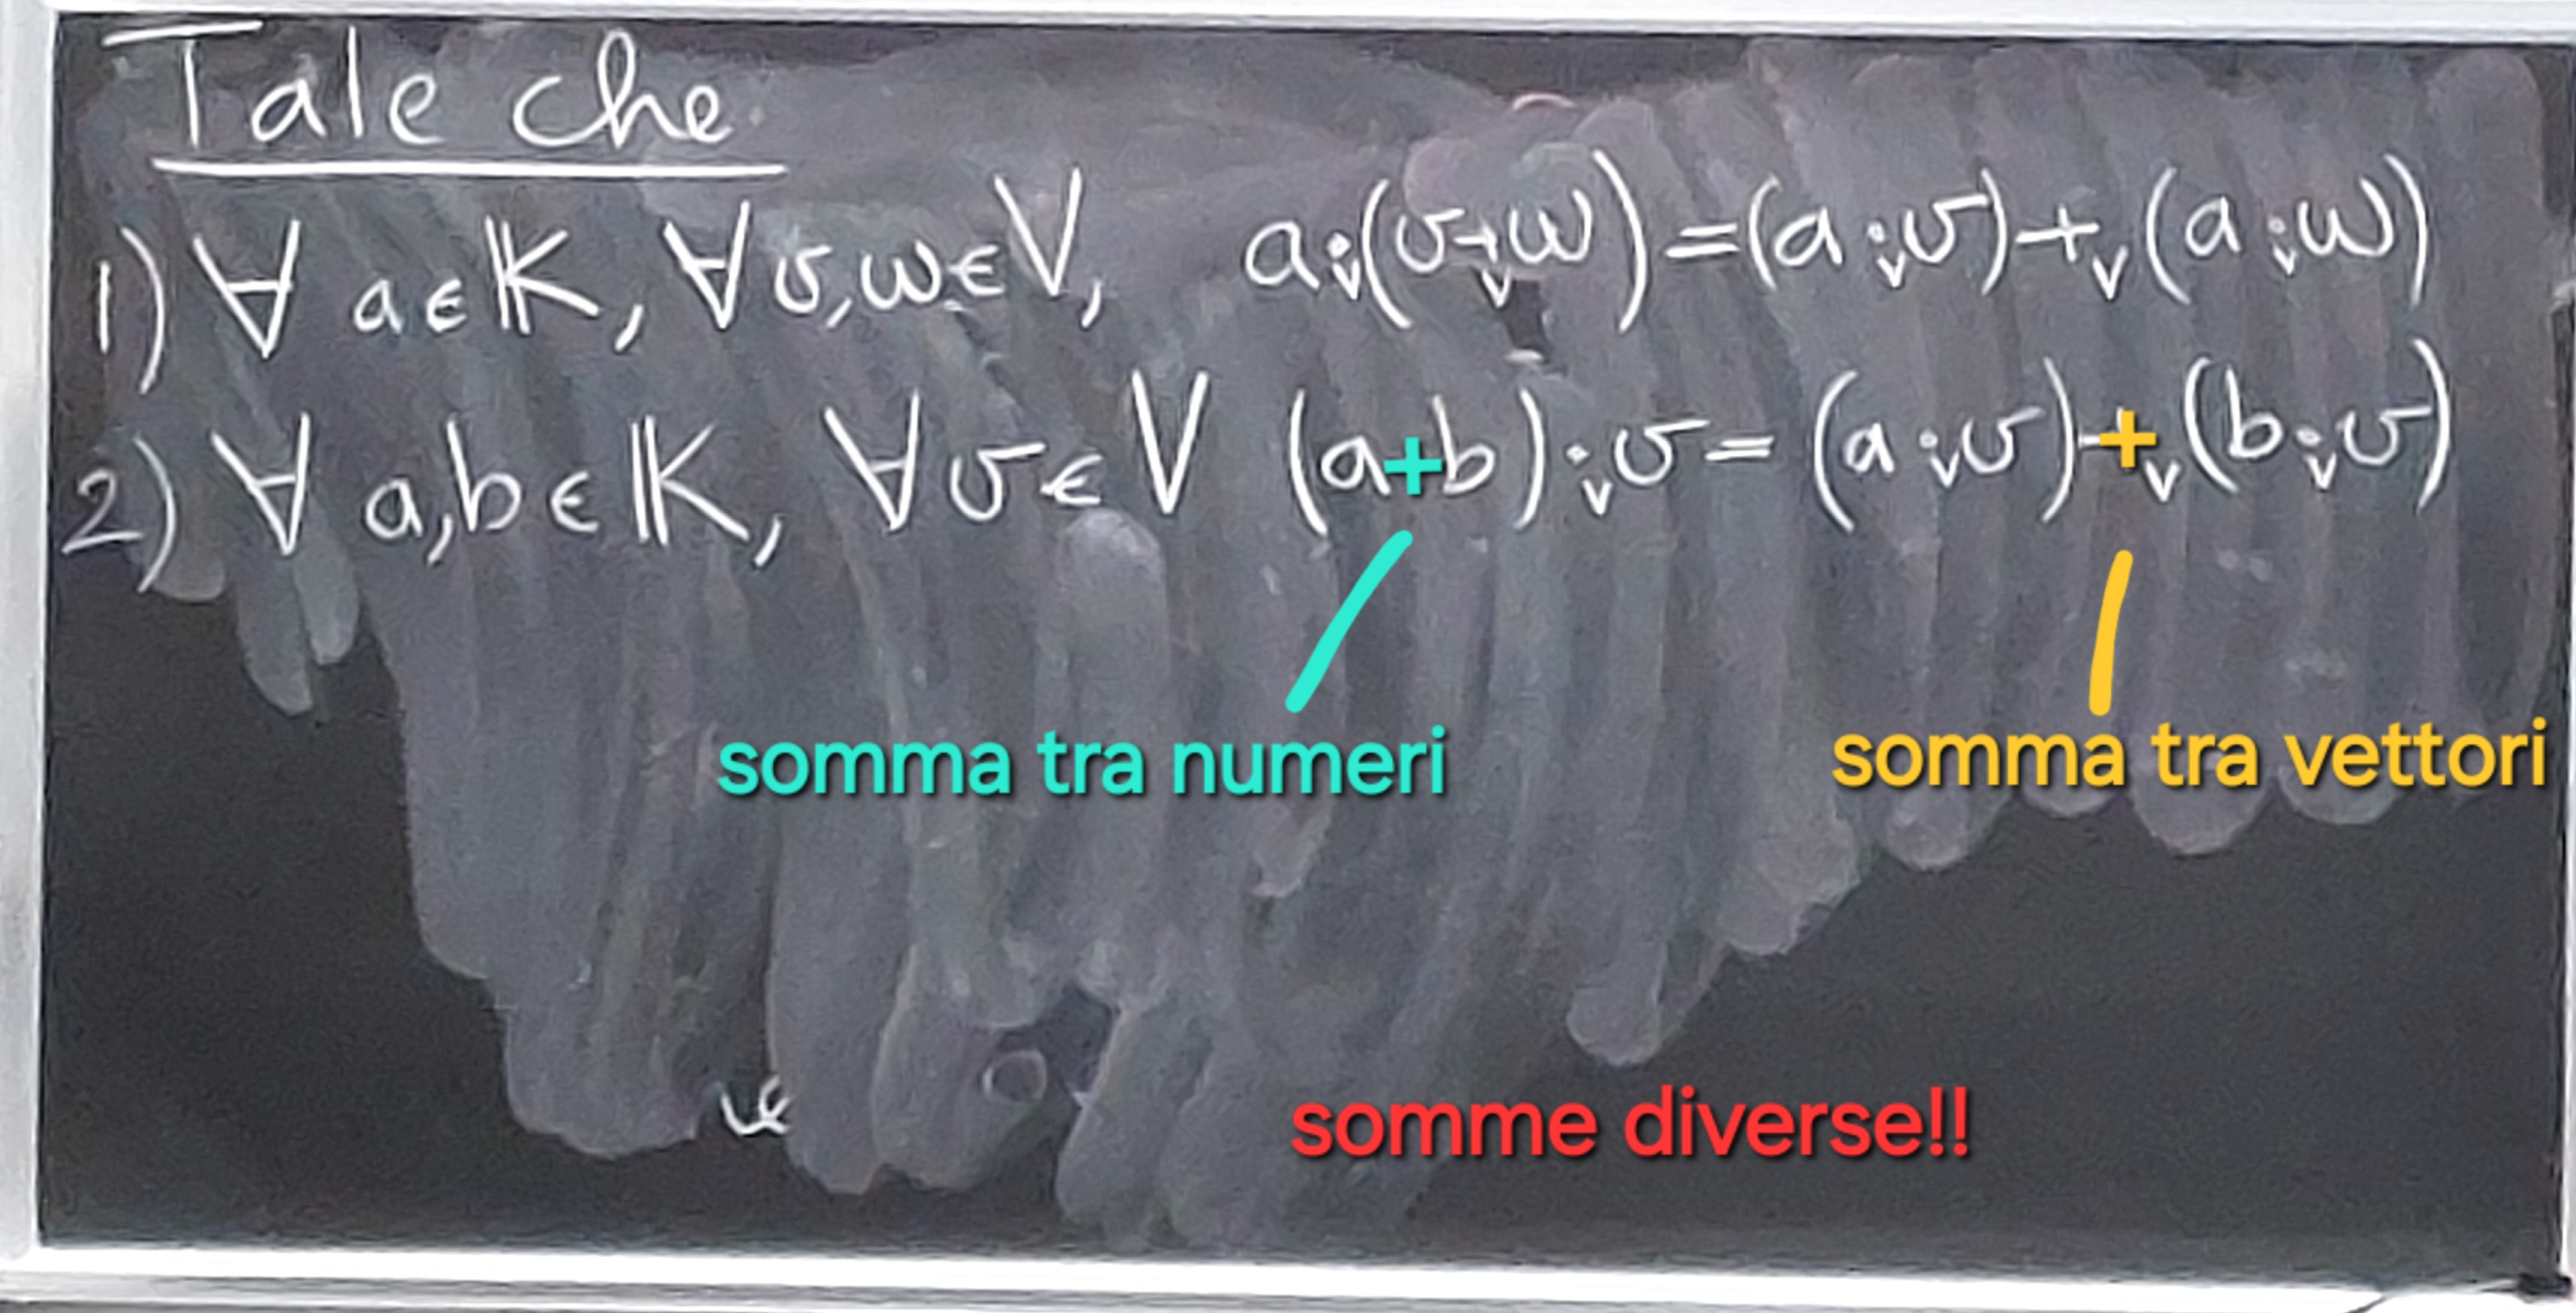 Tale che
1) ∀ a ∈ 𝕂, ∀ v, w ∈ V, a ·ᵥ (v +ᵥ w) = (a ·ᵥ v) +ᵥ (a ·ᵥ w)
2) ∀ a, b ∈ 𝕂, ∀ v ∈ V (a + b) ·ᵥ v = (a ·ᵥ v) +ᵥ (b ·ᵥ v)
somma tra numeri
somma tra vettori
somme diverse!!